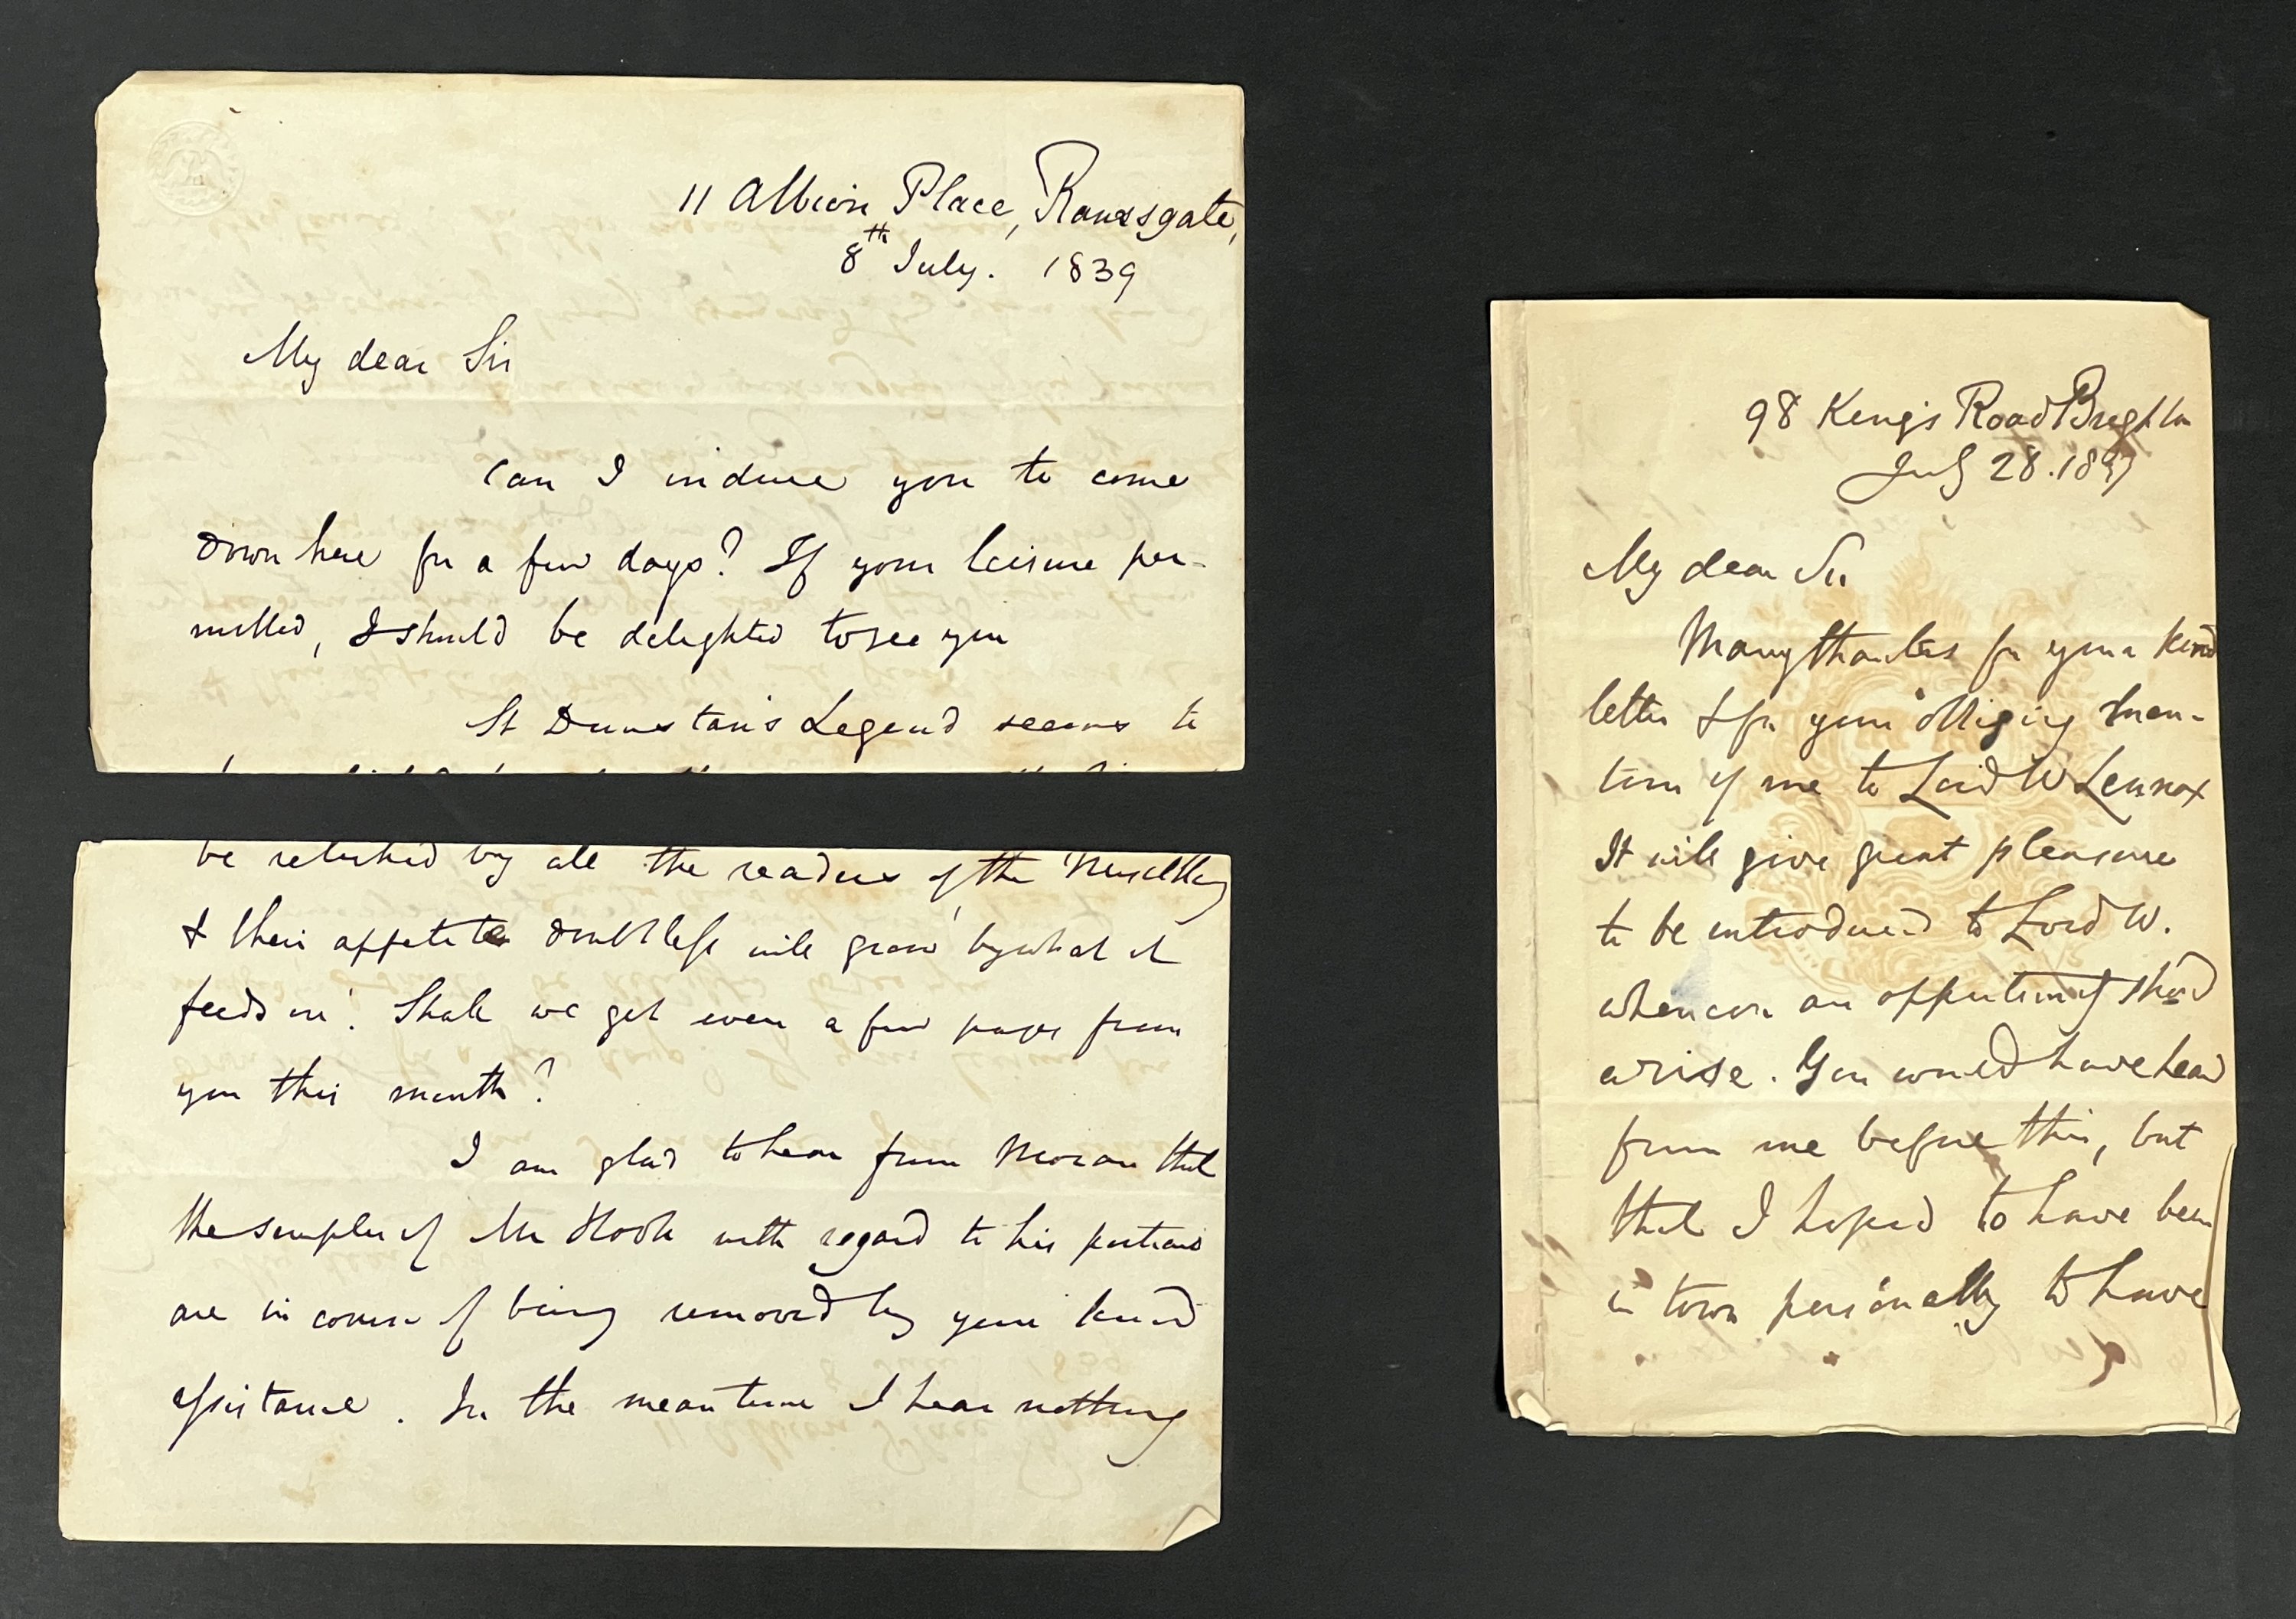 11 Albion Place, Ramsgate,
8th July. 1839
My dear Sir
Can I induce you to come
down here for a few days? If your leisure per-
mitted, I should be delighted to see you
St Dunstan's Legend seems to
be relished by all the readers of the Miscellany
& their appetite doubtless will grow by what it
feeds on'. Shall we get even a few pages from
you this month?
I am glad to hear from Moran that
the scruples of Mr Hook with regard to his portrait
are in course of being removed by your kind
assistance. In the mean time I hear nothing
98 King's Road Brighton
July 28.
My dear Sir
Many thanks for your kind
letter & for your obliging men-
tion of me to Lord W Lennox
It will give great pleasure
to be introduced to Lord W.
whenever an opportunity should
arise. You would have heard
from me before this, but
that I hoped to have been
in town personally to have